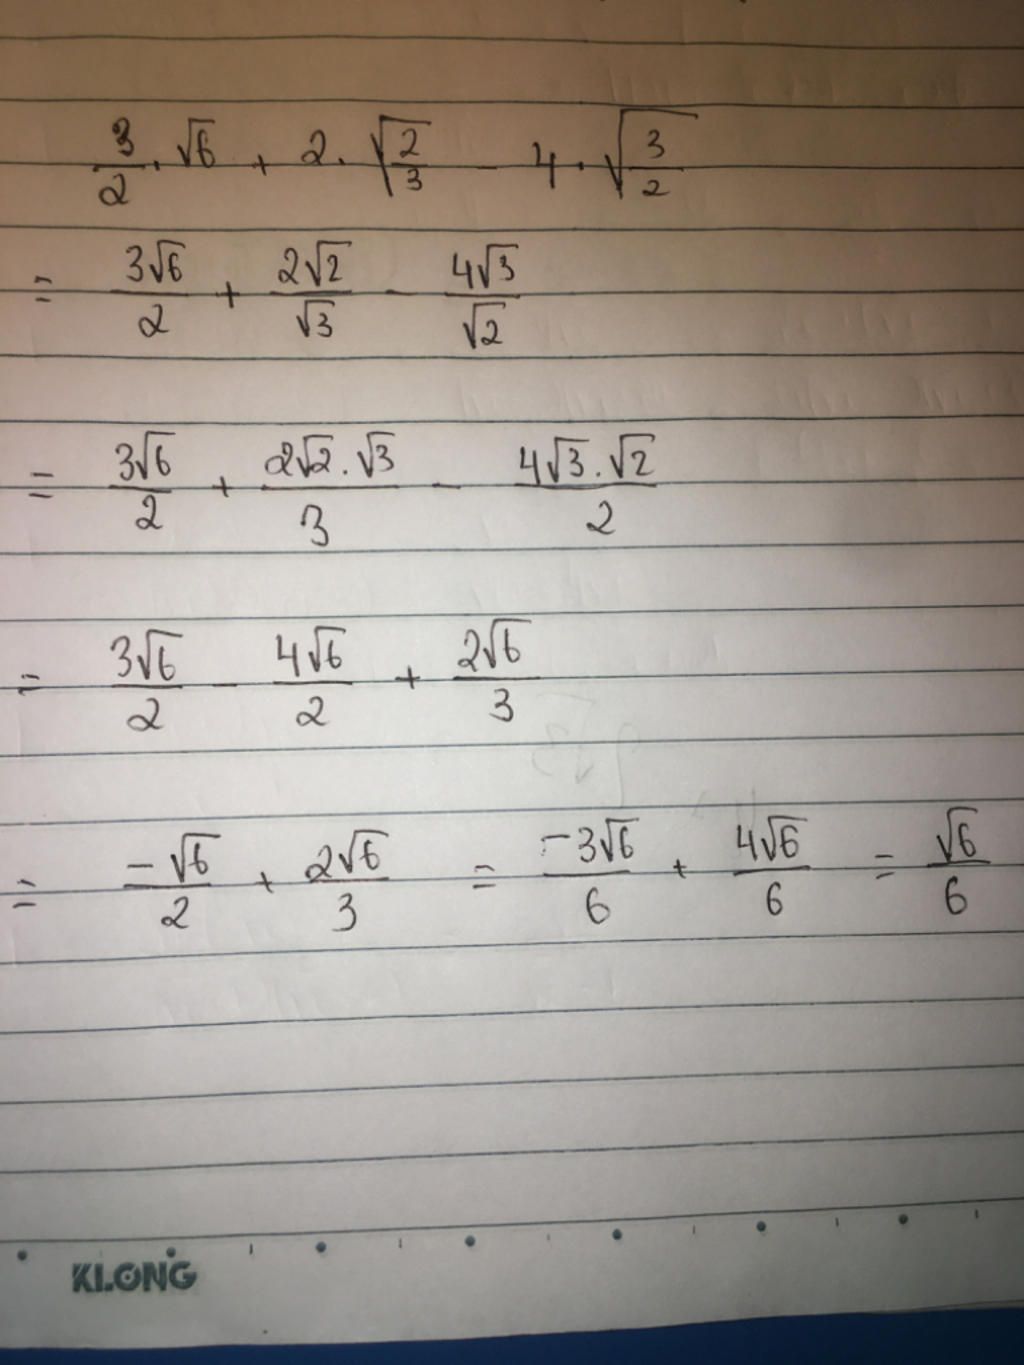 3/2 . √6 + 2 . √(2/3) - 4 . √(3/2)
= 3√6/2 + 2√2/√3 - 4√3/√2
= 3√6/2 + 2√2.√3/3 - 4√3.√2/2
= 3√6/2 - 4√6/2 + 2√6/3
= -√6/2 + 2√6/3 = -3√6/6 + 4√6/6 = √6/6
KLONG